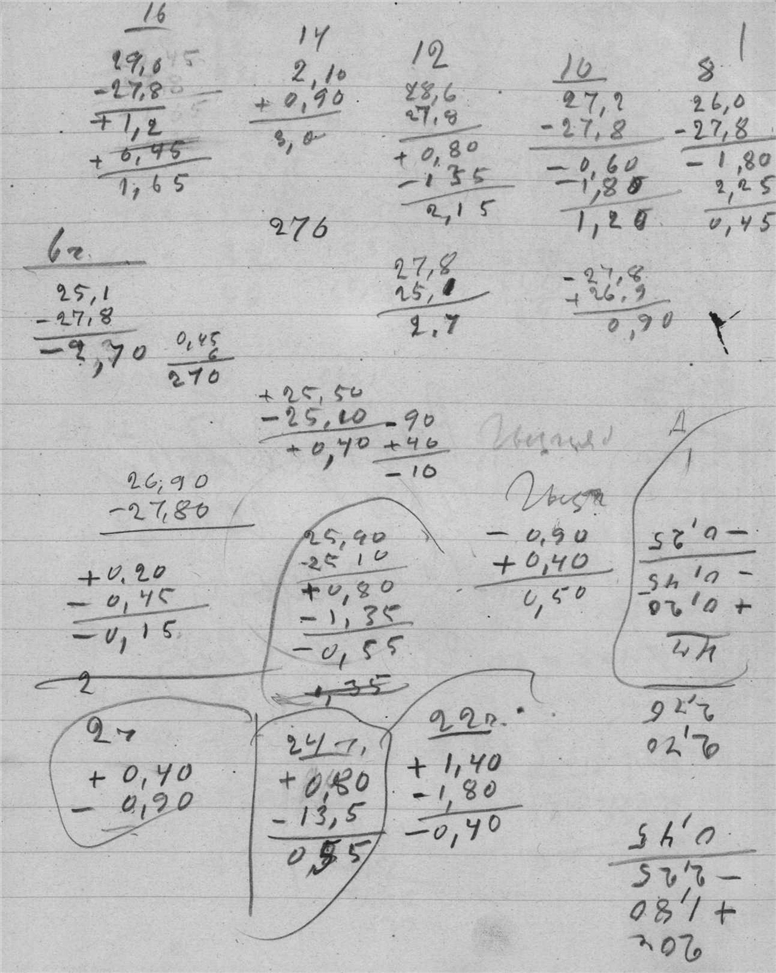 16
29,0
-27,8
+1,2
+0,45
1,65
14
2,10
+0,90
3,0
12
28,6
27,8
+0,80
-135
2,15
10
27,2
-27,8
-0,60
-1,80
1,20
1
8
26,0
-27,8
-1,80
2,25
0,45
276
6г.
25,1
-27,8
-2,70
0,45
6
270
27,8
25,1
2,7
-27,8
+26,9
0,90
+25,50
-25,10
+0,40
-90
+40
-10
26,90
-27,80
+0,20
-0,45
-0,15
2
25,90
-25 10
+0,80
-1,35
-0,55
1,35
-0,90
+0,40
0,50
Д
1
4г
+0,20
-0,45
-0,25
2г
+0,40
-0,90
24г.
+0,80
-13,5
0,55
22г.
+1,40
-1,80
-0,40
2,70
20г
+1,80
-2,25
0,45